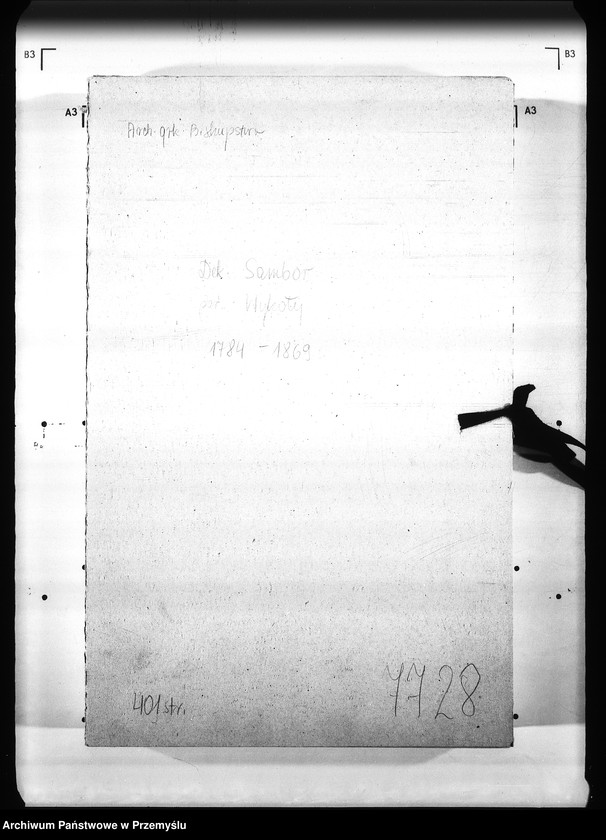 B3 B3
A3 A3
Arch. grk. Biskupstwa
Dek. Sambor
par. Wykoty
1784 - 1869
401 str.
7728
Archiwum Państwowe w Przemyślu